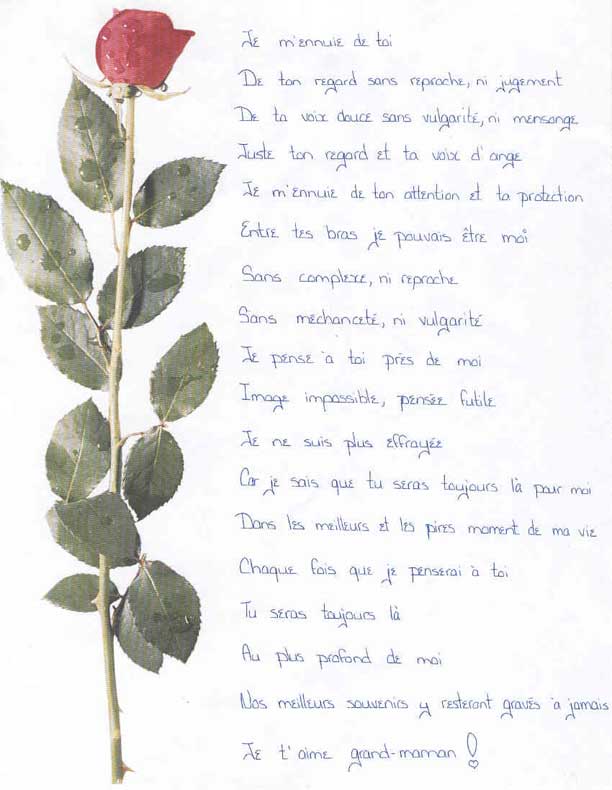 Je m'ennuie de toi
De ton regard sans reproche, ni jugement
De ta voix douce sans vulgarité, ni mensonge
Juste ton regard et ta voix d'ange
Je m'ennuie de ton attention et ta protection
Entre tes bras je pouvais être moi
Sans complexe, ni reproche
Sans mechanceté, ni vulgarité
Je pense à toi près de moi
Image impossible, pensée futile
Je ne suis plus effrayée
Car je sais que tu seras toujours là pour moi
Dans les meilleurs et les pires moment de ma vie
Chaque fois que je penserai à toi
Tu seras toujours là
Au plus profond de moi
Nos meilleurs souvenirs y resteront gravés à jamais
Je t'aime grand-maman !